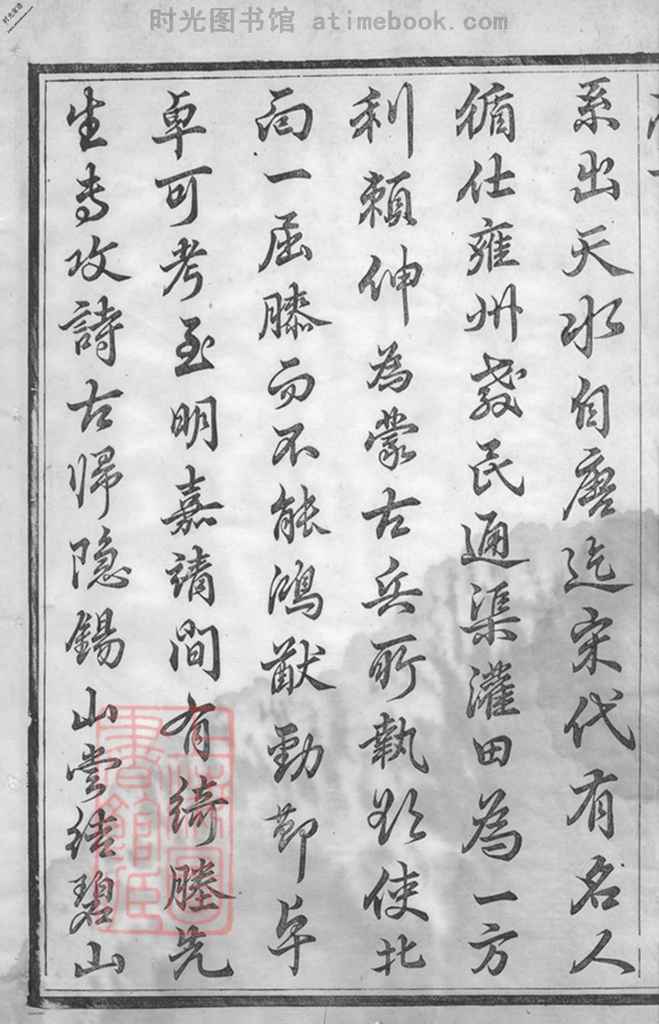 时光图书馆 - atimebook.com
系出天水自唐迄宋代有名人
循仕雍州教民通渠灌田為一方
利賴伸為蒙古兵所執欲使北
面一屈膝而不能鴻猷勁節卓
卓可考至明嘉靖間有綺塍先
生專攻詩古歸隐錫山嘗結碧山